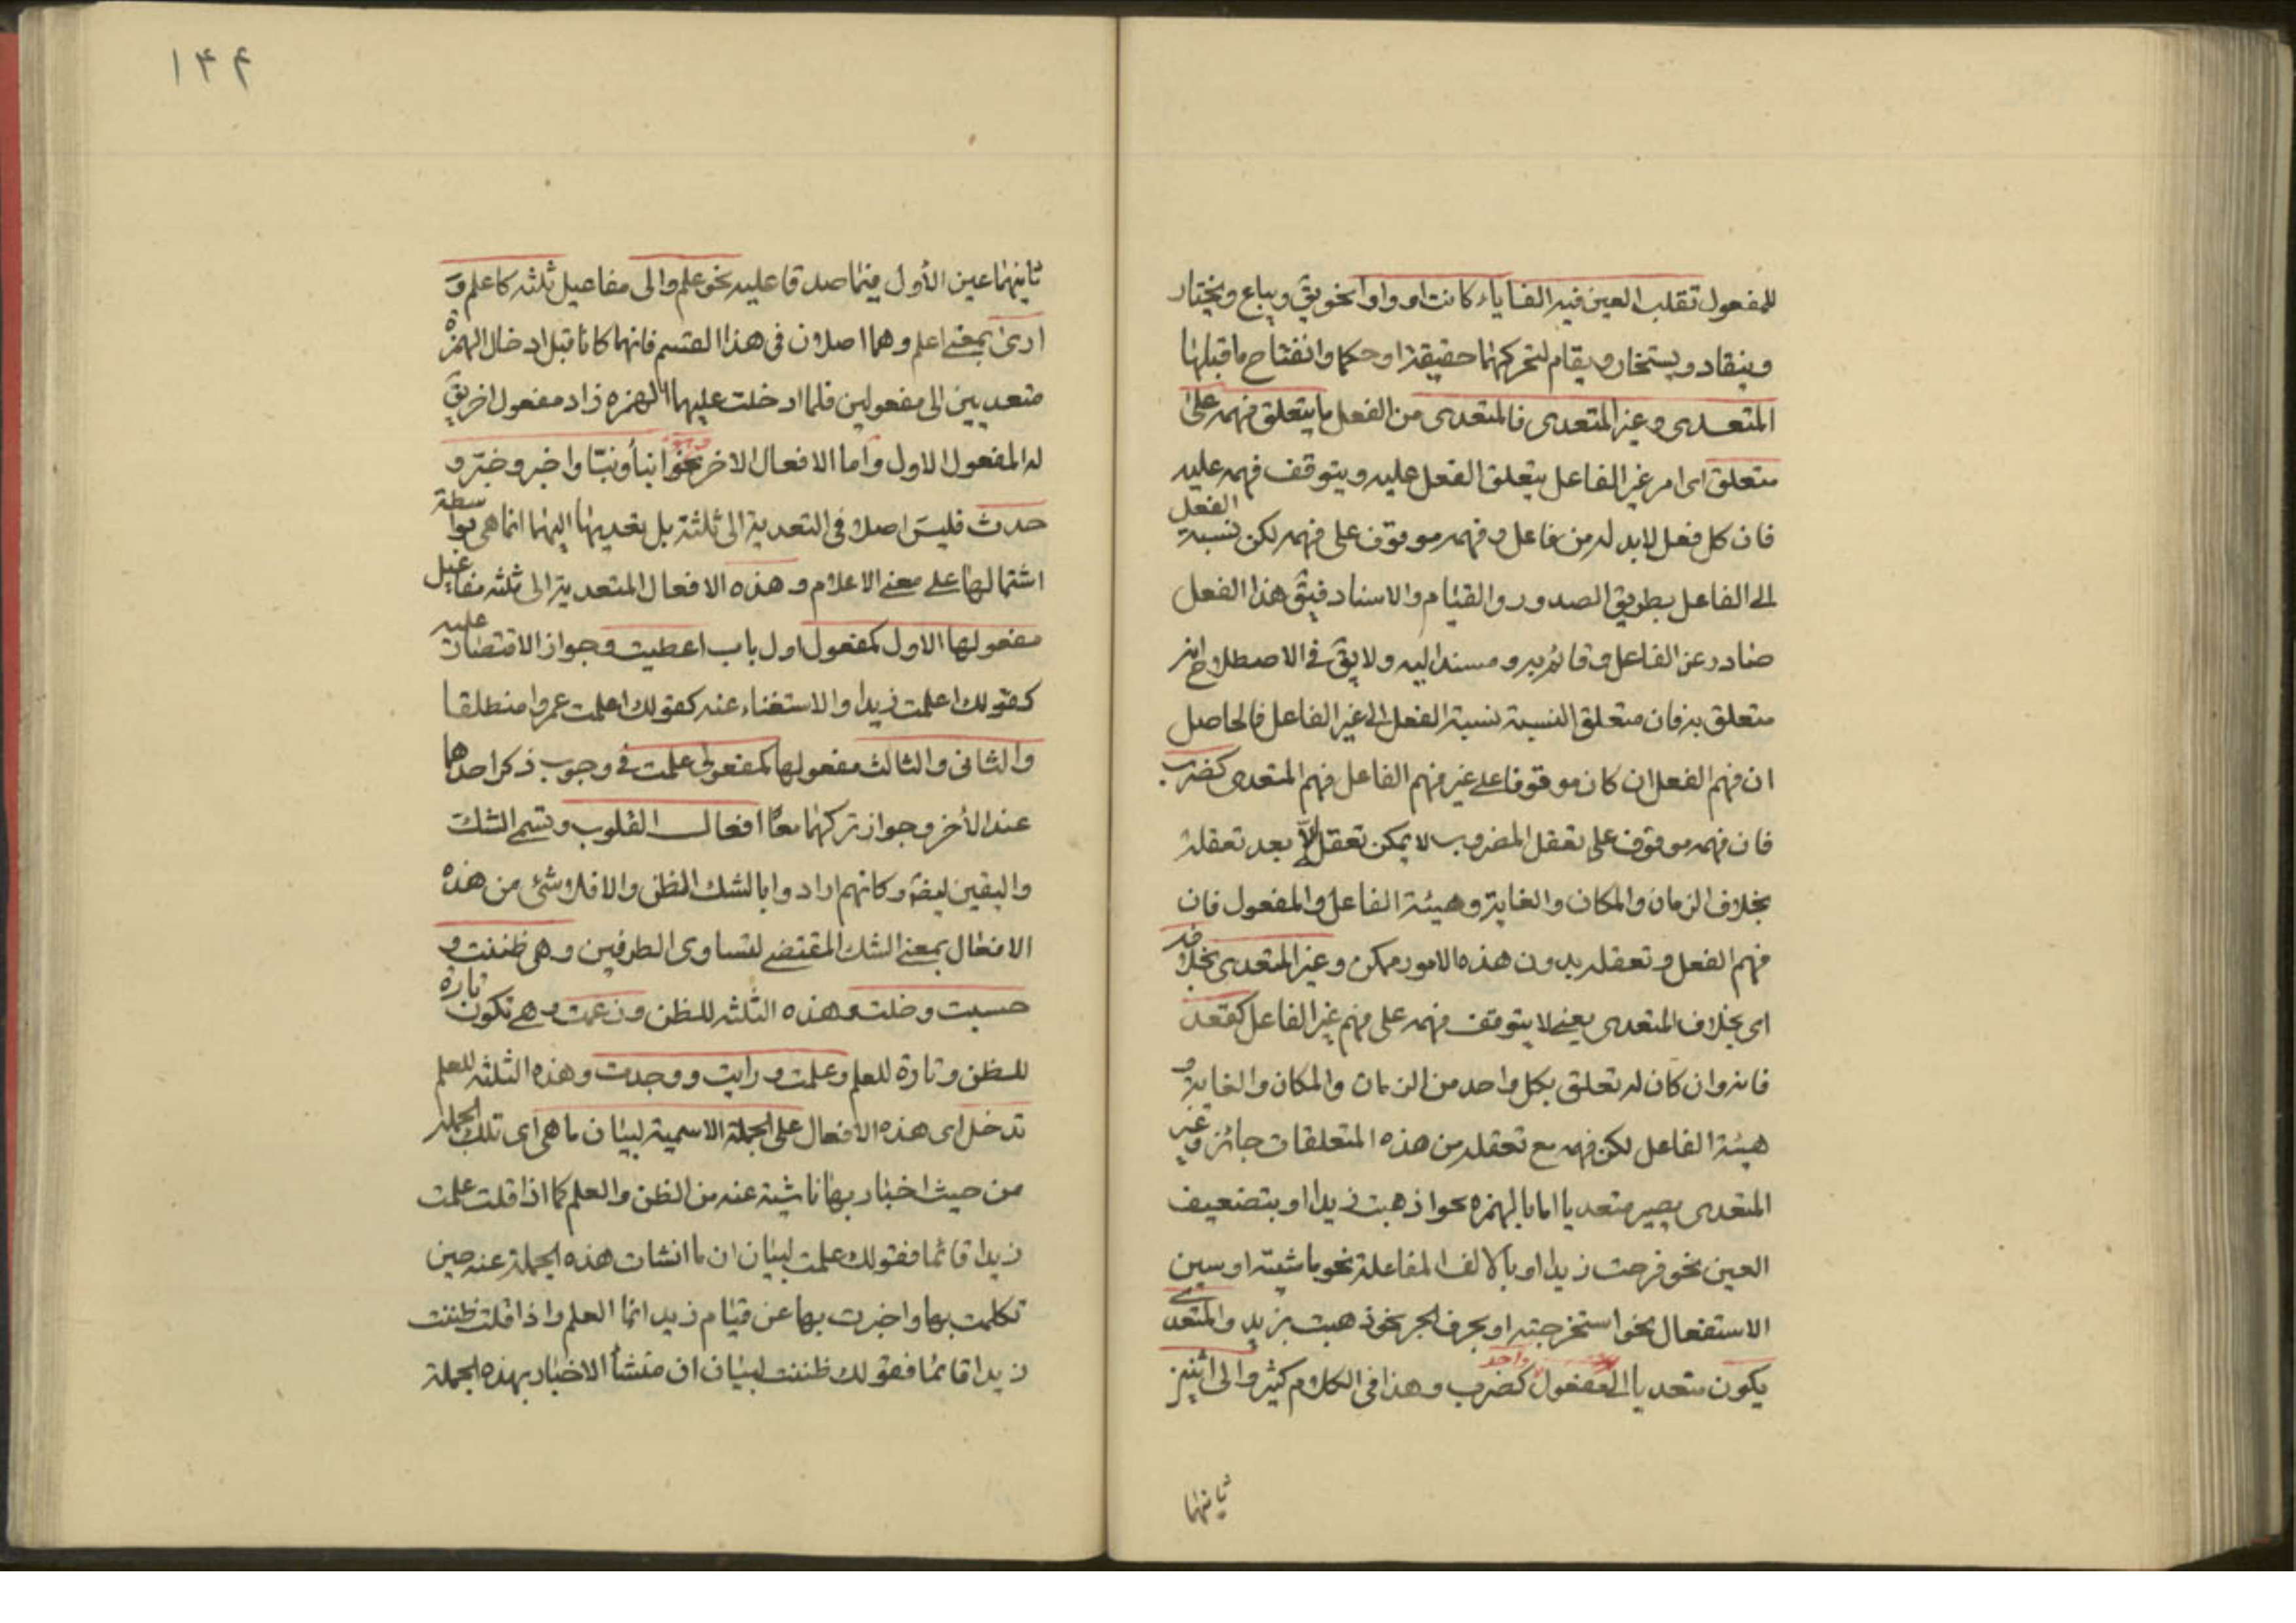 للمفعول تقلب العين فيه الفا ياء كانت او واوا نحو يق ويباع ويختار
وينقاد ويستخار ويقام لتحركهما حقيقة او حكما وانفتاح ما قبلها
المتعدى وغير المتعدى فالمتعدى من الفعل ما يتعلق فهمه على
متعلق اى امر غير الفاعل يتعلق الفعل عليه ويتوقف فهمه عليه
فان كل فعل لابد له من فاعل وفهمه موقوف على فهمه لكن نسبة الفعل
الى الفاعل بطريق الصدور والقيام والاسناد فيق هذا الفعل
صادر عن الفاعل وقائم به ومسند اليه ولا يق فى الاصطلاح انه
متعلق به فان متعلق النسبة نسبة الفعل الى غير الفاعل فالحاصل
ان فهم الفعل ان كان موقوفا على غير فهم الفاعل فهم المتعدى كضرب
فان فهمه موقوف على تعقل المضروب لا يمكن تعقل الا بعد تعقله
بخلاف الزمان والمكان والغاية وهيئة الفاعل والمفعول فان
فهم الفعل وتعقله بدون هذه الامور ممكن وغير المتعدى بخلافه
اى بخلاف المتعدى يعنى لا يتوقف فهمه على فهم غير الفاعل كقعد
فانه وان كان له تعلق بكل واحد من الزمان والمكان والغاية و
هيئة الفاعل لكن فهمه مع تعقله من هذه المتعلقات جائز وغير
المتعدى يصير متعديا اما بالهمزه نحو اذهبت زيدا او بتضعيف
العين نحو فرحت زيدا او بالالف المفاعلة نحو ماشيته او سين
الاستفعال نحو استخرجته او بحرف الجر نحو ذهبت بزيد والمتعدى
يكون متعديا الى مفعول واحد كضرب وهذا فى الكلام كثير والى اثنين
ثانيهما
١۴۴
ثانيهما عين الأول فيما صدقا عليه نحو علم والى مفاعيل ثلثه كاعلم و
ارى بمعنى اعلم وهما اصلان فى هذا القسم فانهما كانا قبل ادخال الهمزة
متعديين الى مفعولين فلما ادخلت عليهما الهمزه زاد مفعول اخر يق
له المفعول الاول واما الافعال الاخر نحو انبأ ونبّا واخبر وخبّر و
حدث فليس اصلا فى التعدية الى ثلثة بل تعديتها اليهما انما هى بواسطة
اشتمالها على معنى الاعلام وهذه الافعال المتعدية الى ثلثه مفاعيل
مفعولها الاول كمفعول اول باب اعطيت فى جواز الاقتصار عليه
كقولك اعلمت زيدا والاستغناء عنه كقولك اعلمت عمروا منطلقا
والثانى والثالث مفعولها كمفعولى علمت فى وجوب ذكر احدهما
عند الأخر وجواز تركهما معًا افعال القلوب وتسمى الشك
واليقين ايضا وكانهم ارادوا بالشك الظن والا فلا شئ من هذه
الافعال بمعنى الشك المقتضى لتساوى الطرفين وهى ظننت و
حسبت وخلت وهذه الثلثه للظن وزعمت وهى تكون تارة
للظن وتارة للعلم وعلمت ورايت ووجدت وهذه الثلثه للعلم
تدخل اى هذه الافعال على الجملة الاسمية لبيان ما هى اى تلك الجملة
من حيث اخبار بها ناشية عنه من الظن والعلم كما اذا قلت علمت
زيدا قائما فقولك علمت لبيان ان ما انشات هذه الجملة عنه حين
تكلمت بها واخبرت بها عن قيام زيد انما العلم واذا قلت ظننت
زيدا قائما فقولك ظننت لبيان ان منشأ الاخبار بهذه الجملة